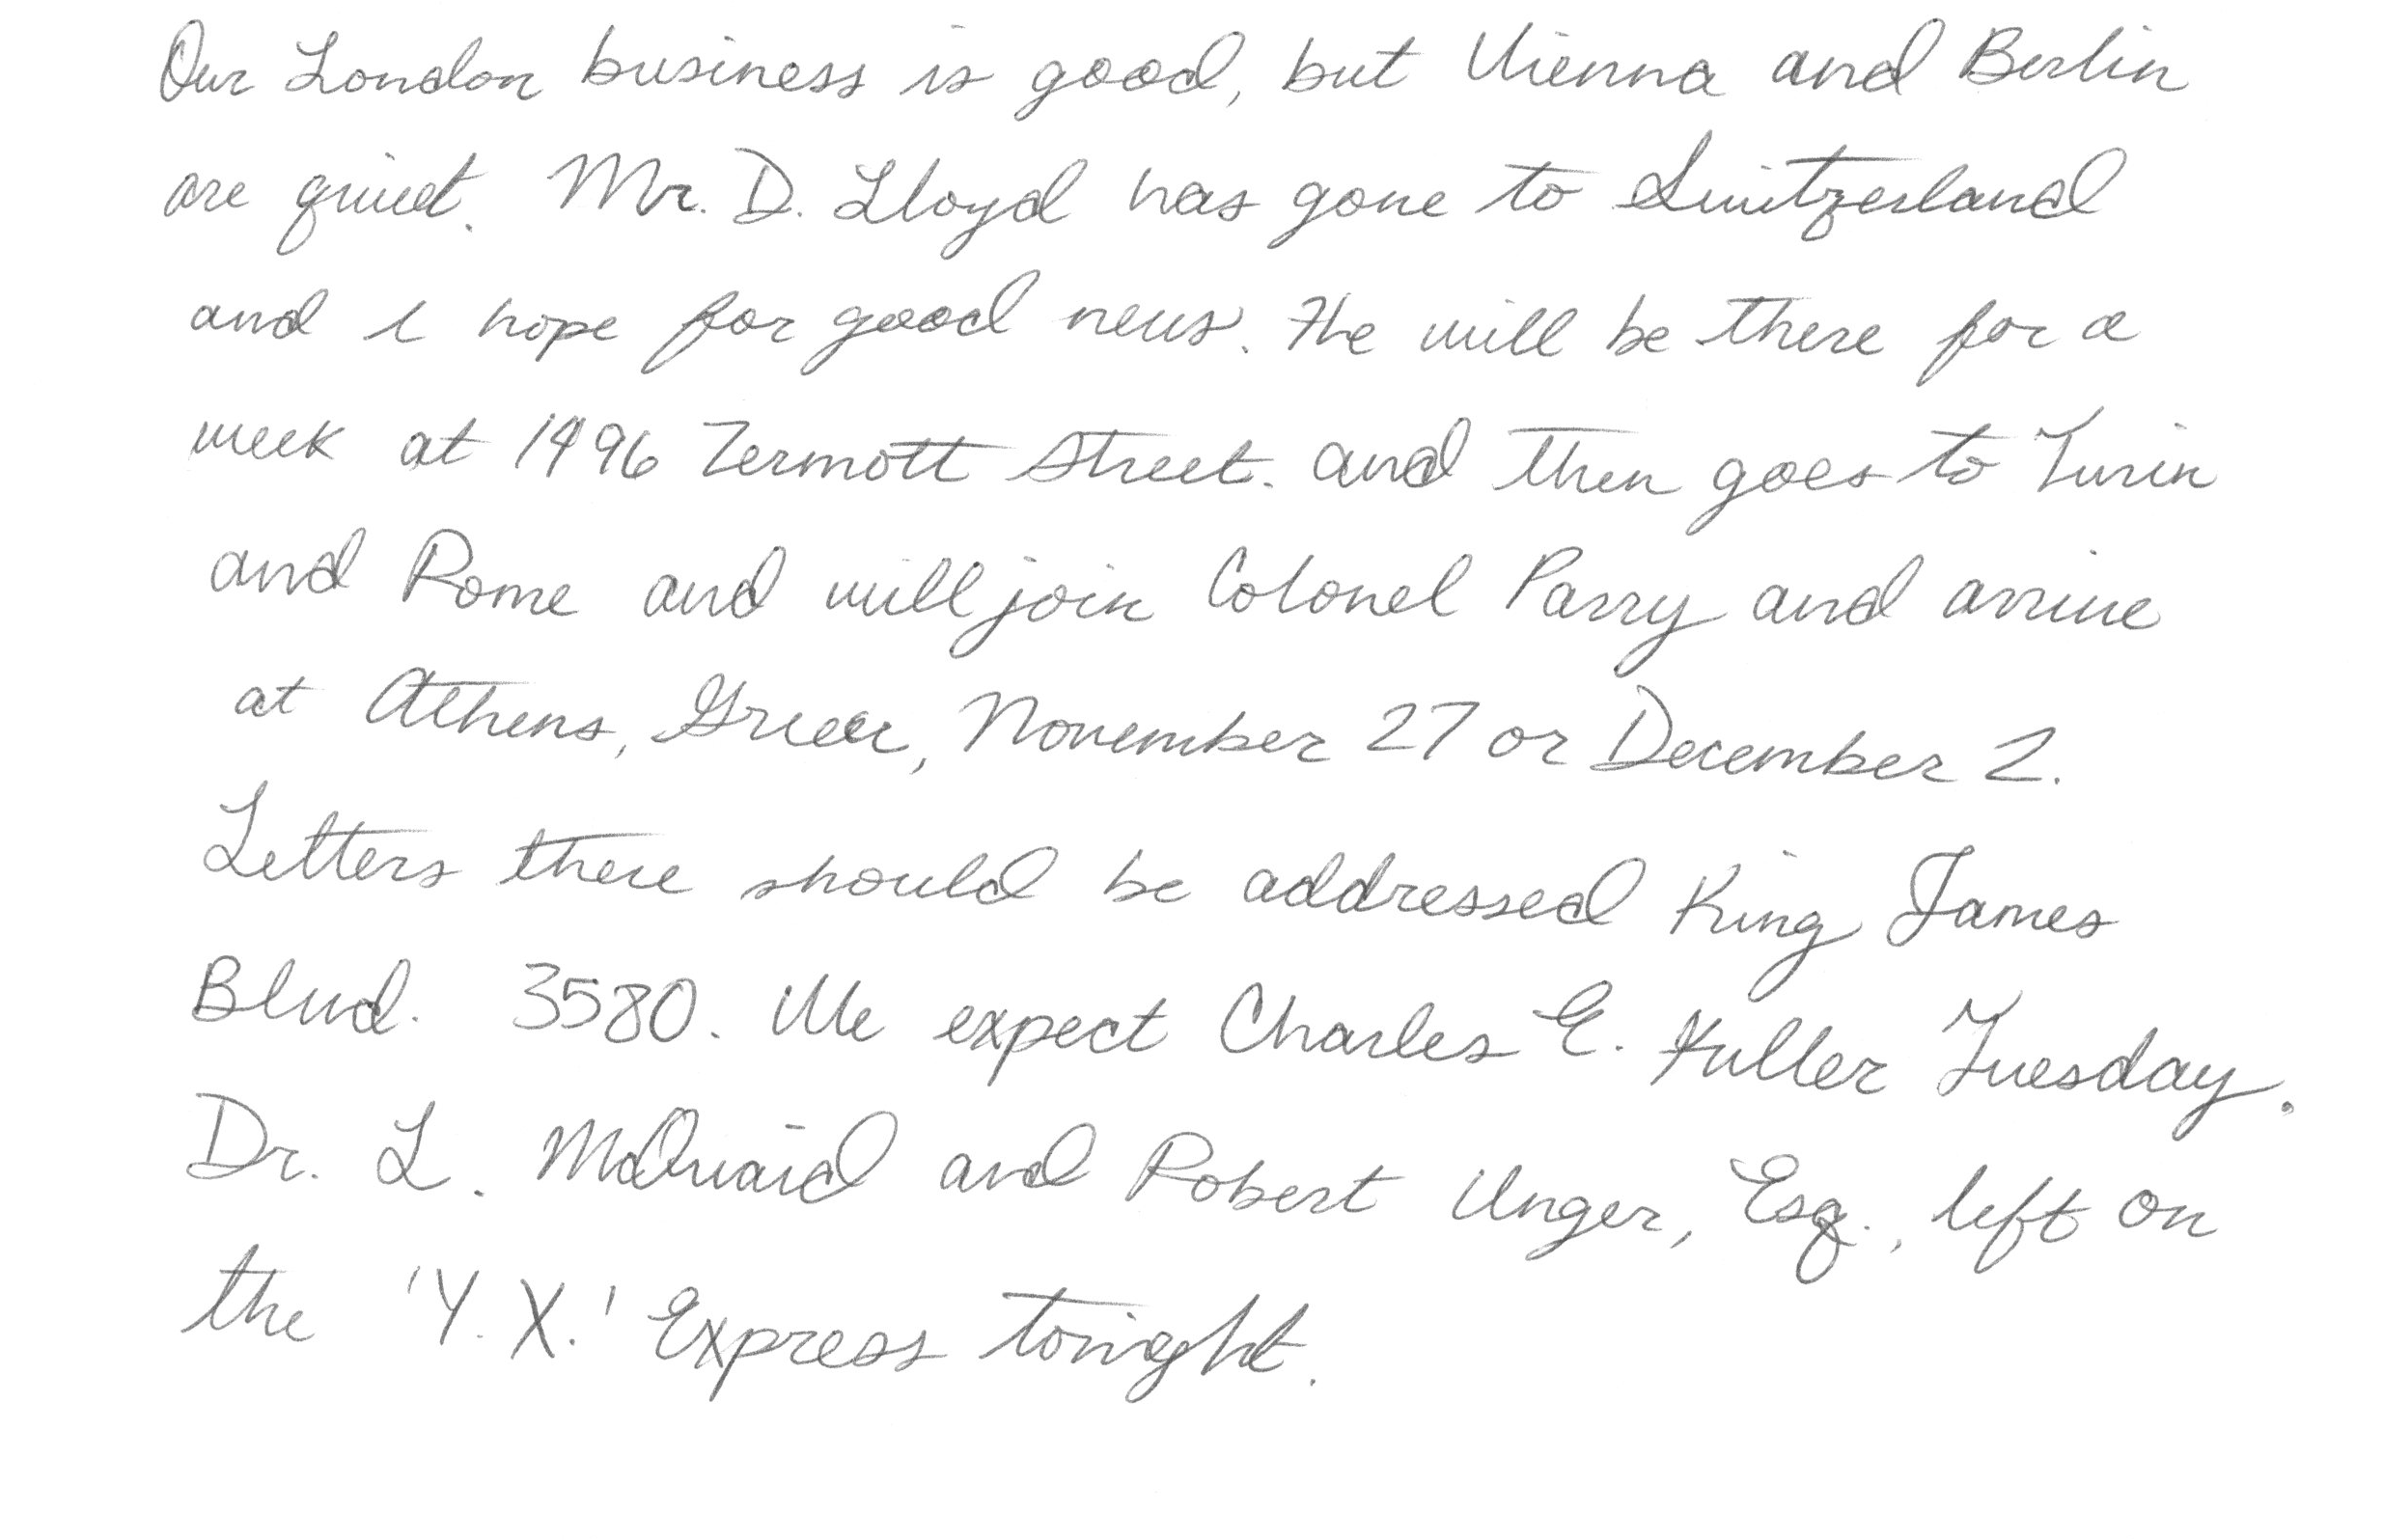 Our London business is good, but Vienna and Berlin
are quiet. Mr. D. Lloyd has gone to Switzerland
and I hope for good news. He will be there for a
week at 1496 Zermott Street. and then goes to Turin
and Rome and will join Colonel Parry and arrive
at Athens, Greece, November 27 or December 2.
Letters there should be addressed King James
Blvd. 3580. We expect Charles E. Fuller Tuesday.
Dr. L. McQuaid and Robert Unger, Esq., left on
the 'Y. X.' Express tonight.